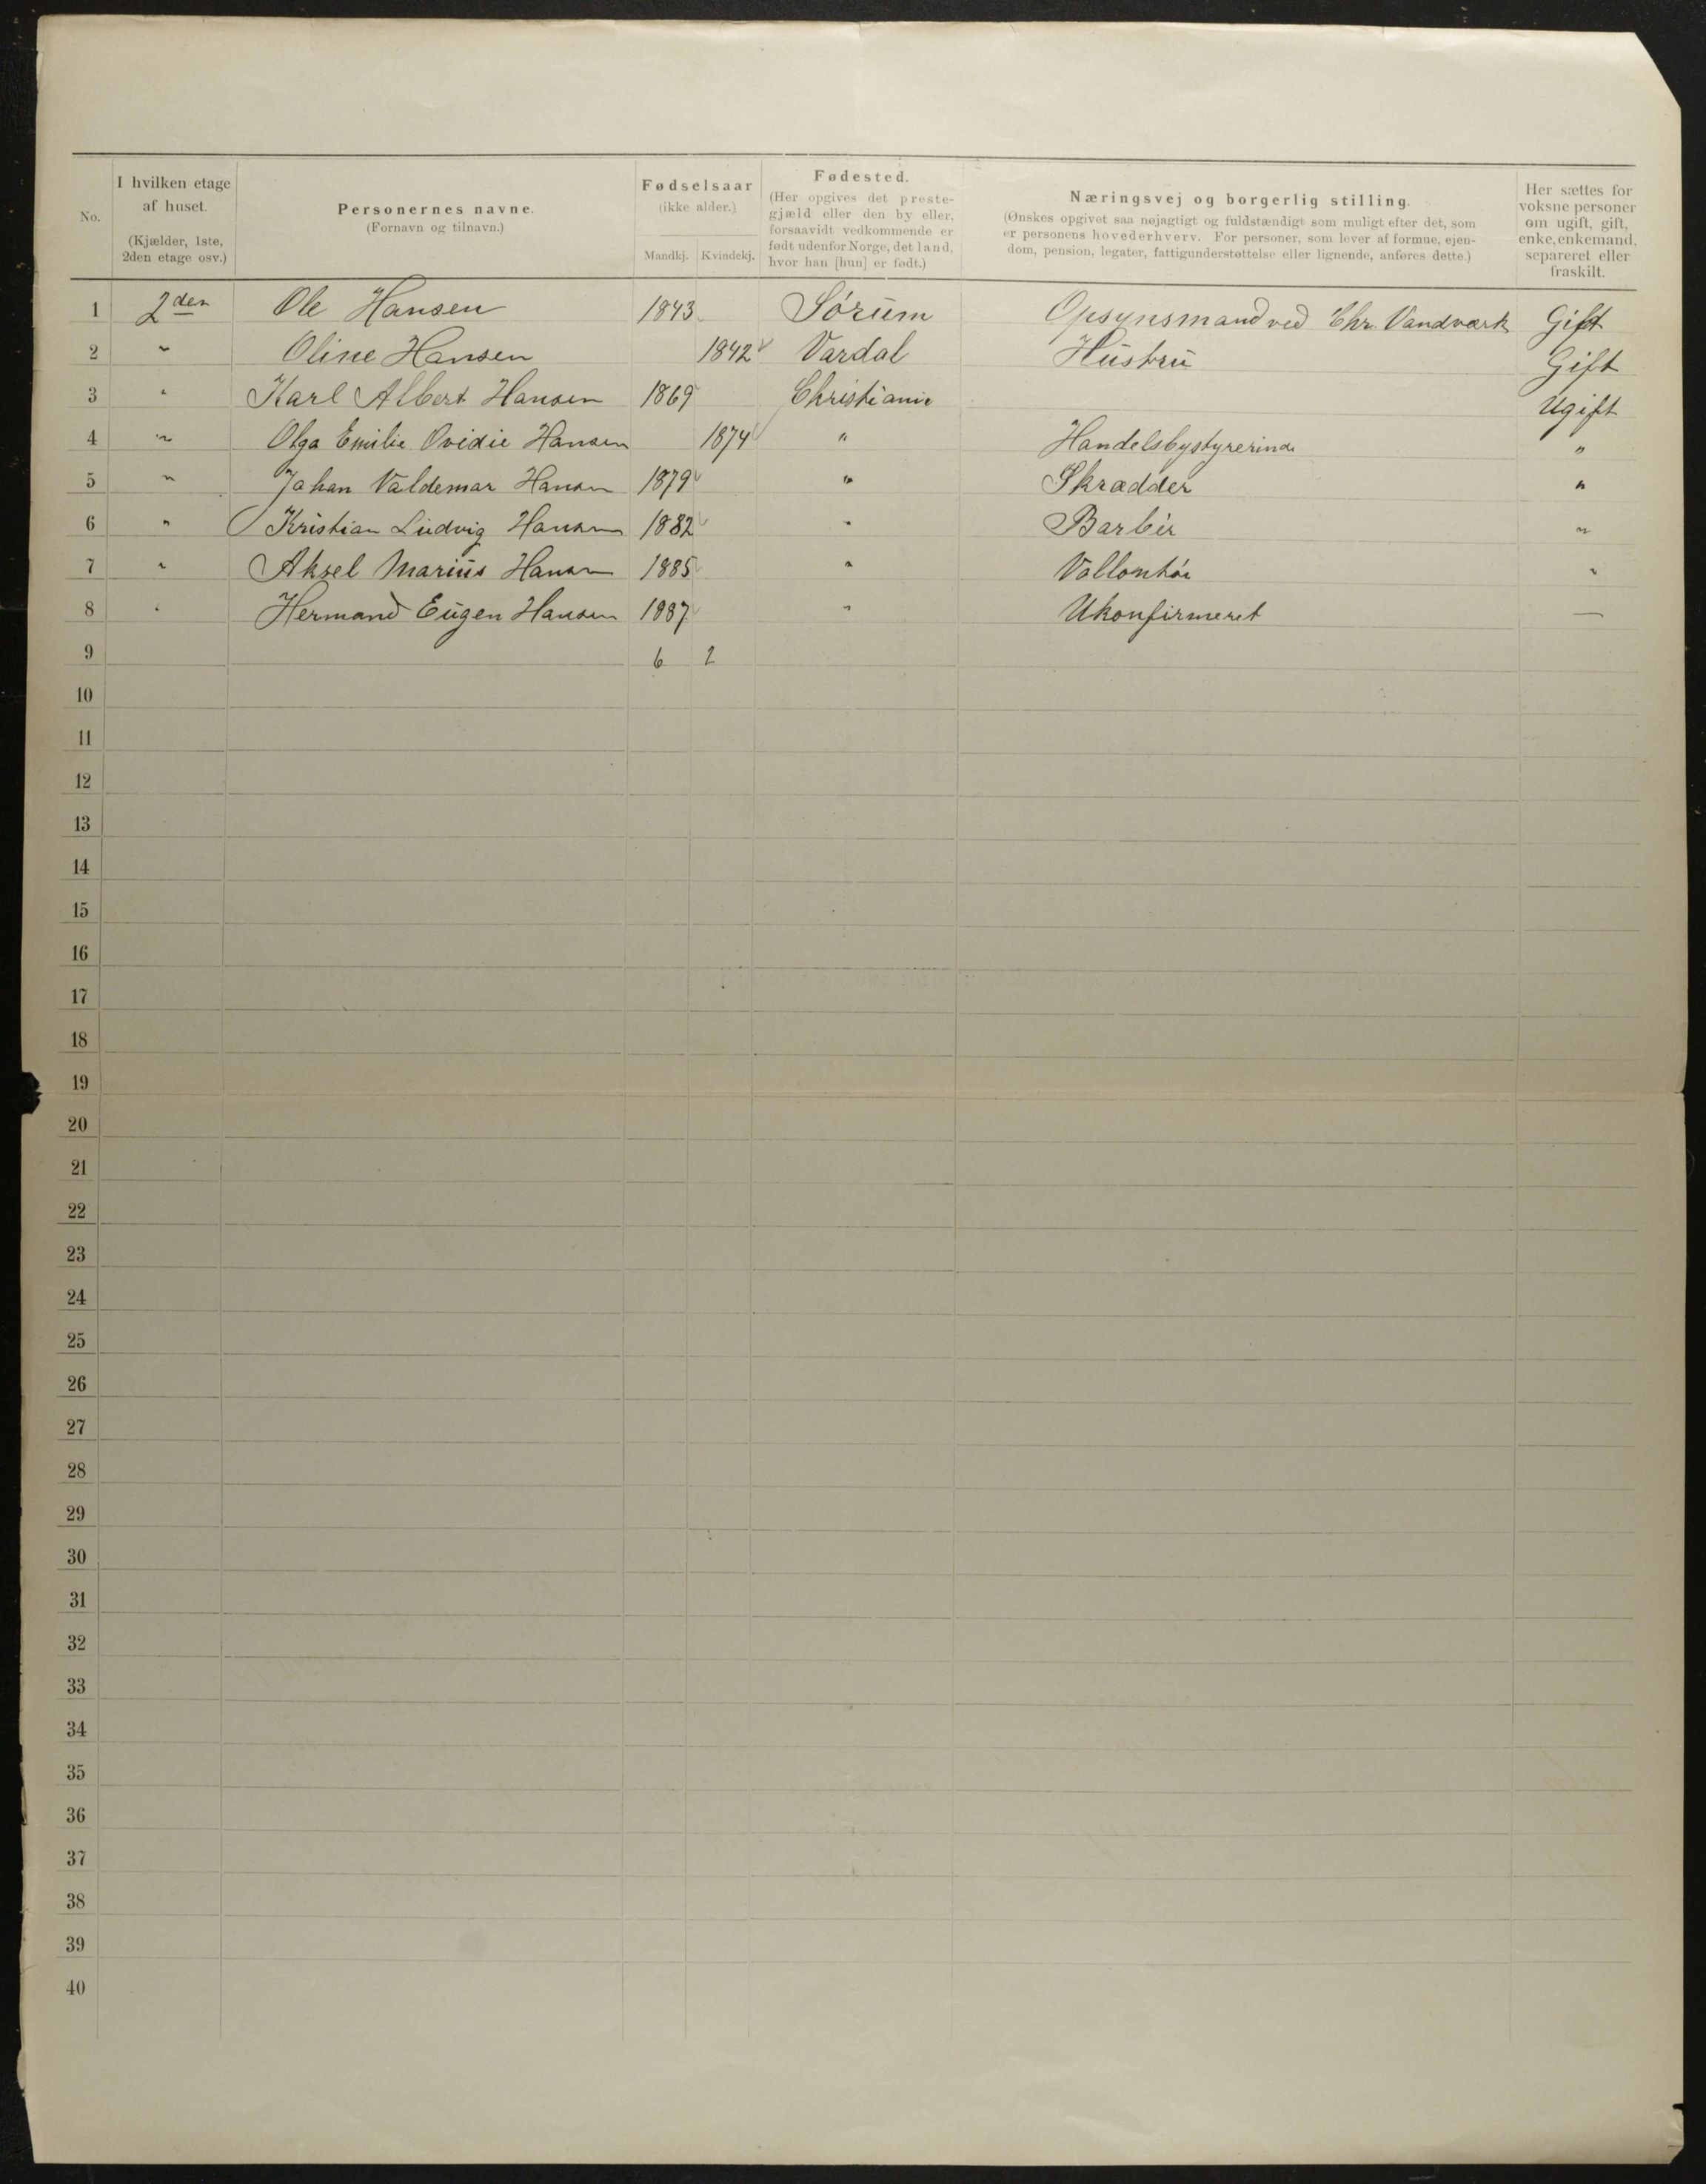 No.
I hvilken etage
af huset.
(Kjælder, 1ste,
2den etage osv.)
Personernes navne.
(Fornavn og tilnavn.)
Fødselsaar
(ikke alder.)
Mandkj. Kvindekj.
Fødested.
(Her opgives det preste-
gjæld eller den by eller,
forsaavidt vedkommende er
født udenfor Norge, det land,
hvor han [hun] er født.)
Næringsvej og borgerlig stilling.
(Ønskes opgivet saa nøjagtigt og fuldstændigt som muligt efter det, som
er personens hovederhverv. For personer, som lever af formue, ejen-
dom, pension, legater, fattigunderstøttelse eller lignende, anføres dette.)
Her sættes for
voksne personer
om ugift, gift,
enke, enkemand,
separeret eller
fraskilt.
1 2den Ole Hansen 1843 Sórum Opsynsmand ved Chr. Vandværk Gift
2 " Oline Hansen 1842 Vardal Hustru Gift
3 " Karl Albert Hansen 1869 Christiania Ugift
4 " Olga Emilie Ovidie Hansen 1874 " Handelsbystyrerinde "
5 " Johan Valdemar Hansen 1879 " Skrædder "
6 " Kristian Ludvig Hansen 1882 " Barbér "
7 " Aksel Marius Hansen 1885 " "
8 " Hermand Eugen Hansen 1887 " Ukonfirmeret —
9 6 2
10
11
12
13
14
15
16
17
18
19
20
21
22
23
24
25
26
27
28
29
30
31
32
33
34
35
36
37
38
39
40